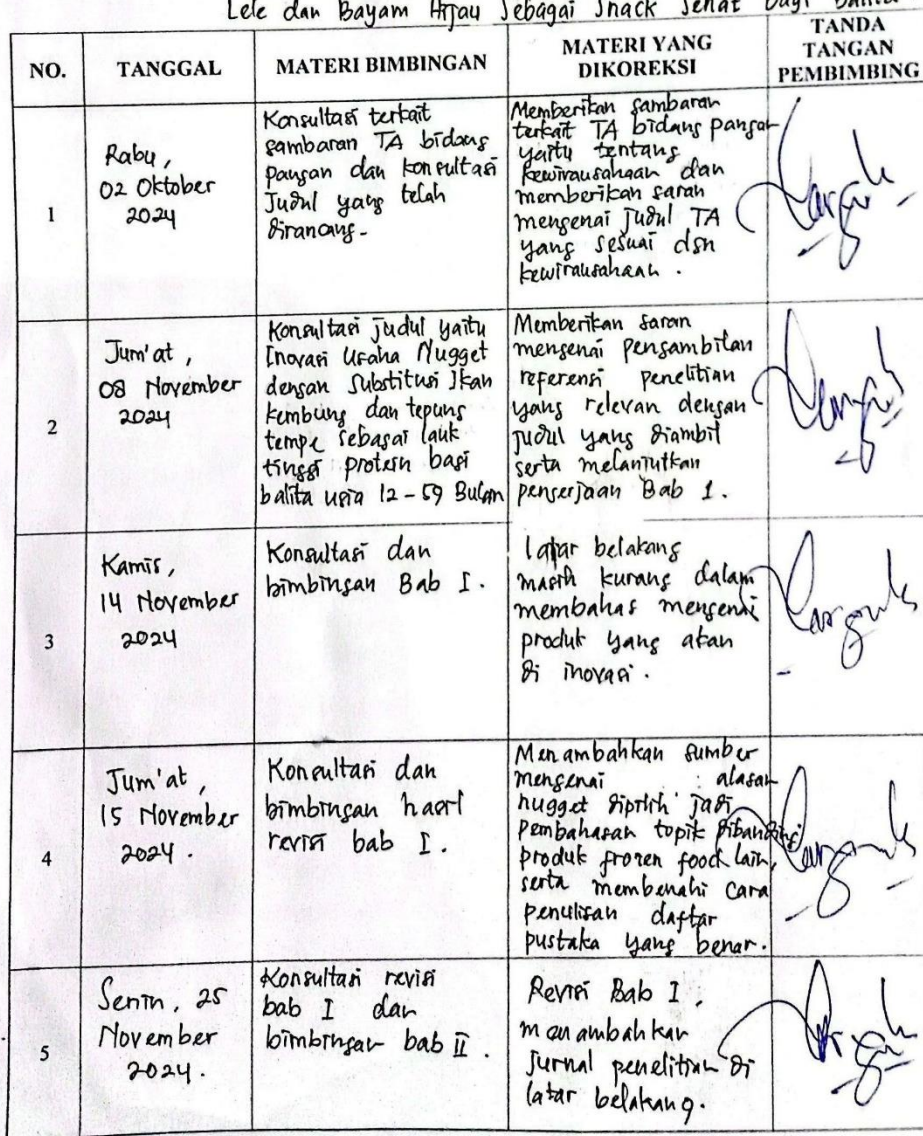 Lele dan Bayam Hijau Sebagai Snack Sehat Bagi Balita
NO.
TANGGAL
MATERI BIMBINGAN
MATERI YANG
DIKOREKSI
TANDA
TANGAN
PEMBIMBING
1
Rabu,
02 Oktober
2024
Konsultasi terkait
gambaran TA bidang
pangan dan konsultasi
Judul yang telah
dirancang.
Memberikan gambaran
terkait TA bidang pangan
yaitu tentang
kewirausahaan dan
memberikan saran
mengenai Judul TA
yang sesuai dgn
kewirausahaan.
2
Jum'at,
08 November
2024
Konsultasi judul yaitu
Inovasi Usaha Nugget
dengan Substitusi Ikan
kembung dan tepung
tempe sebagai lauk
tinggi protein bagi
balita usia 12-59 Bulan
Memberikan saran
mengenai pengambilan
referensi penelitian
yang relevan dengan
judul yang diambil
serta melanjutkan
pengerjaan Bab 1.
3
Kamis,
14 November
2024
Konsultasi dan
bimbingan Bab I.
latar belakang
masih kurang dalam
membahas mengenai
produk yang akan
di inovasi.
4
Jum'at,
15 November
2024.
Konsultasi dan
bimbingan hasil
revisi bab I.
Menambahkan sumber
mengenai alasan
nugget dipilih jadi
pembahasan topik dibanding
produk frozen food lain,
serta membenahi cara
penulisan daftar
pustaka yang benar.
5
Senin, 25
November
2024.
Konsultasi revisi
bab I dan
bimbingan bab II.
Revisi Bab I,
menambahkan
Jurnal penelitian di
latar belakang.